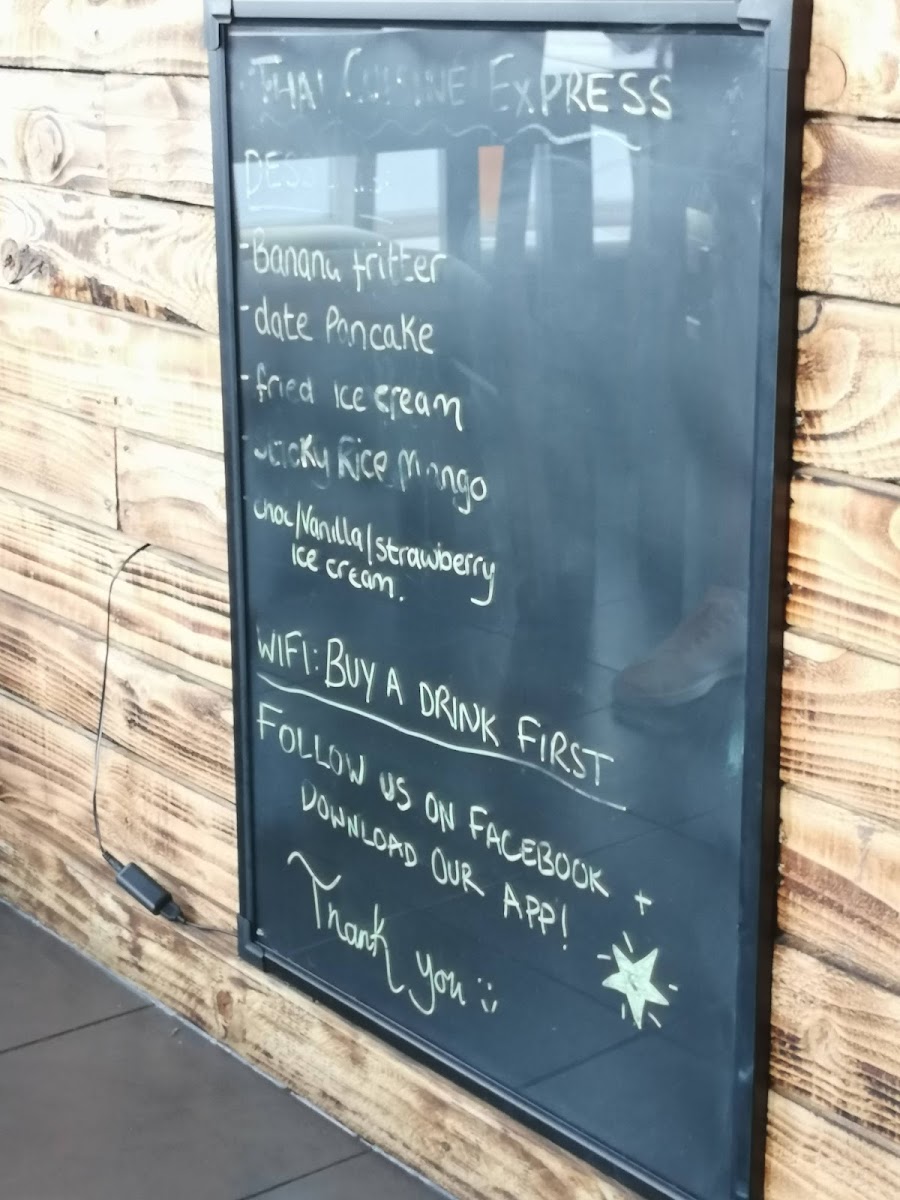 THAI CUISINE EXPRESS
- Banana fritter
- date Pancake
- fried ice cream
Sticky Rice Mango
choc/Vanilla/strawberry
Ice cream.
WIFI: BUY A DRINK FIRST
FOLLOW US ON FACEBOOK +
DOWNLOAD OUR APP!
Thank you :)